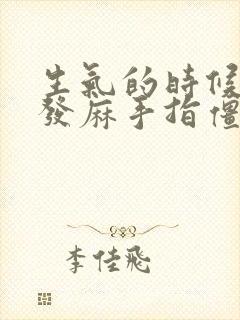 生氣的時候
發麻手指僵
李佳飛